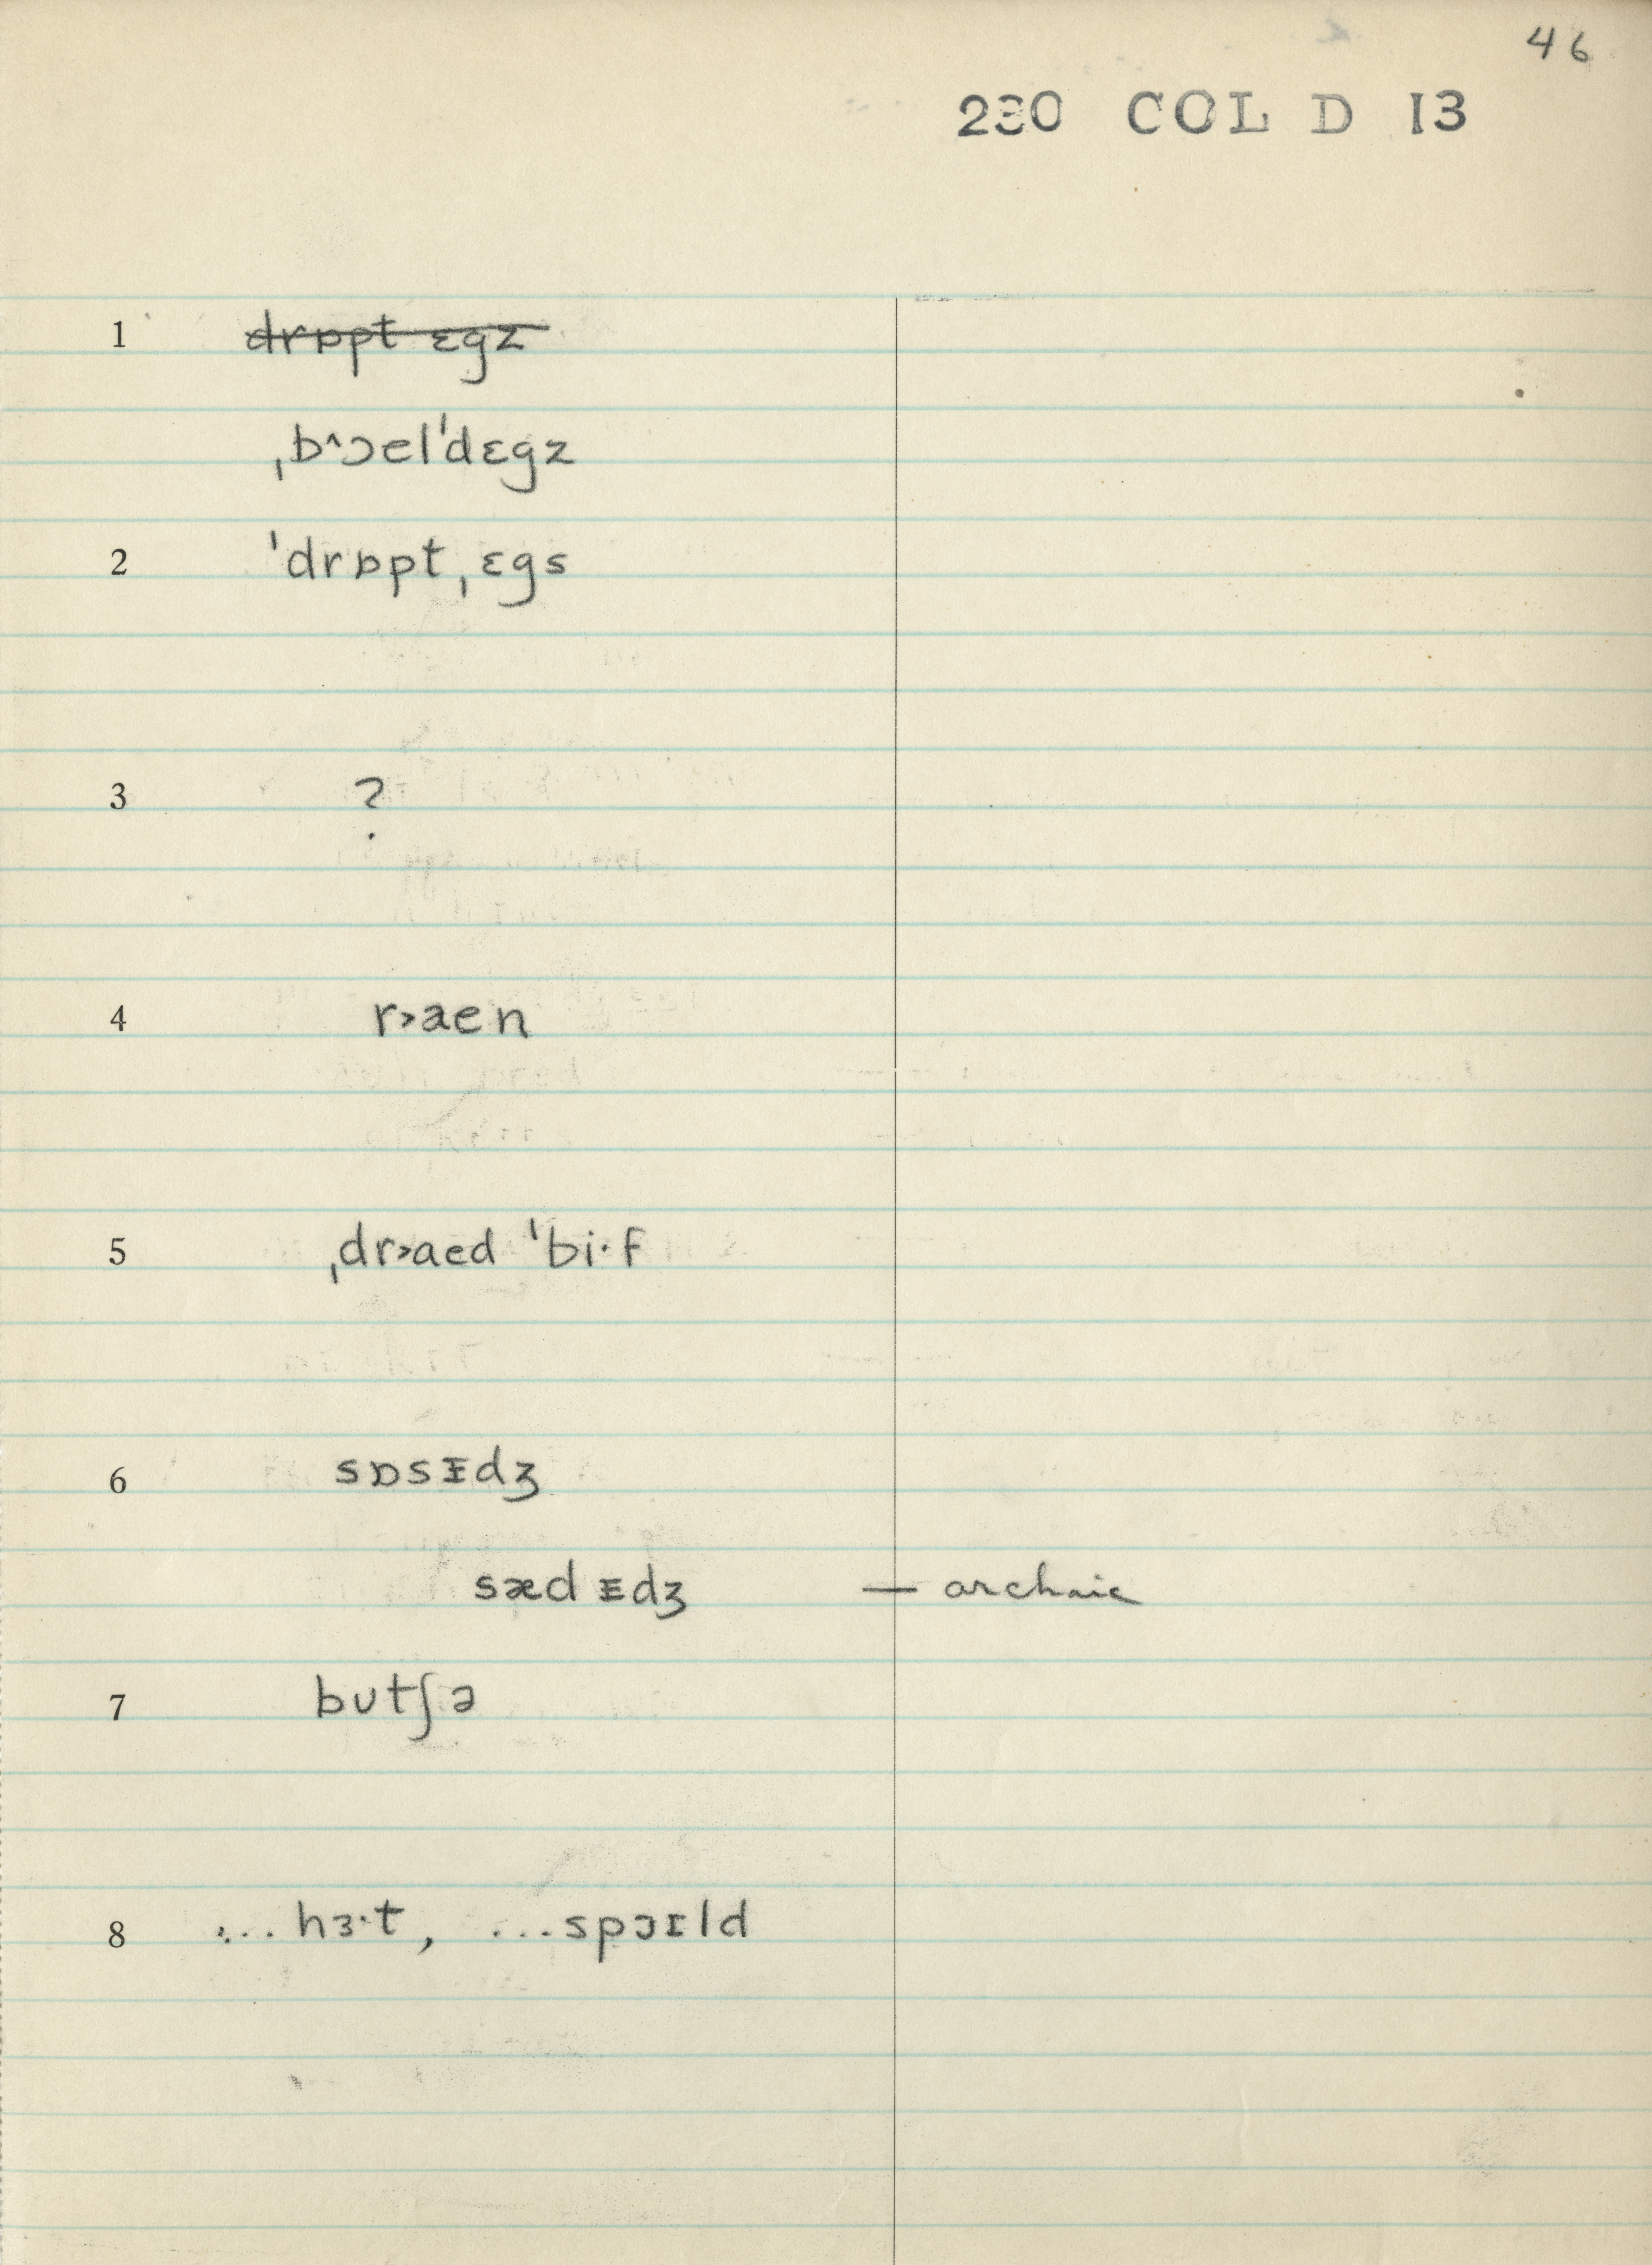 46
230 COL D 13
1 drɒpt ɛgz
ˌbˆɔel'dɛgz
2 'drɒpt ˌɛgs
3 ?
4 r>aen
5 ˌdr>aed 'bi·f
6 sɒsᵻdʒ
sæd ᵻdʒ — archaic
7 bʊtʃə
8 ... hɜ·t, ...spɔɪld